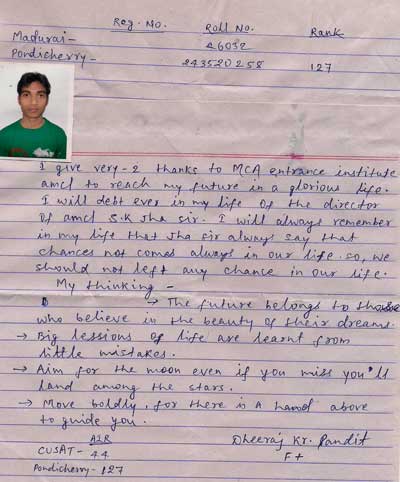 Reg. No. Roll No. Rank
Madurai - 46032
Pondicherry - 243520258 127
I give very-2 thanks to MCA entrance institute
amcl to reach my future in a glorious life.
I will debt ever in my life of the director
of amcl S.K Jha sir. I will always remember
in my life that Jha sir always say that
chances not comes always in our life. so, we
should not left any chance in our life.
My thinking -
→ The future belongs to those
who believe in the beauty of their dreams.
→ Big lessions of life are learnt from
little mistakes.
→ Aim for the moon even if you miss you'll
land among the stars.
→ Move boldly, for there is a hand above
to guide you.
AIR
CUSAT - 44
Pondicherry - 127
Dheeraj Kr. Pandit
F+